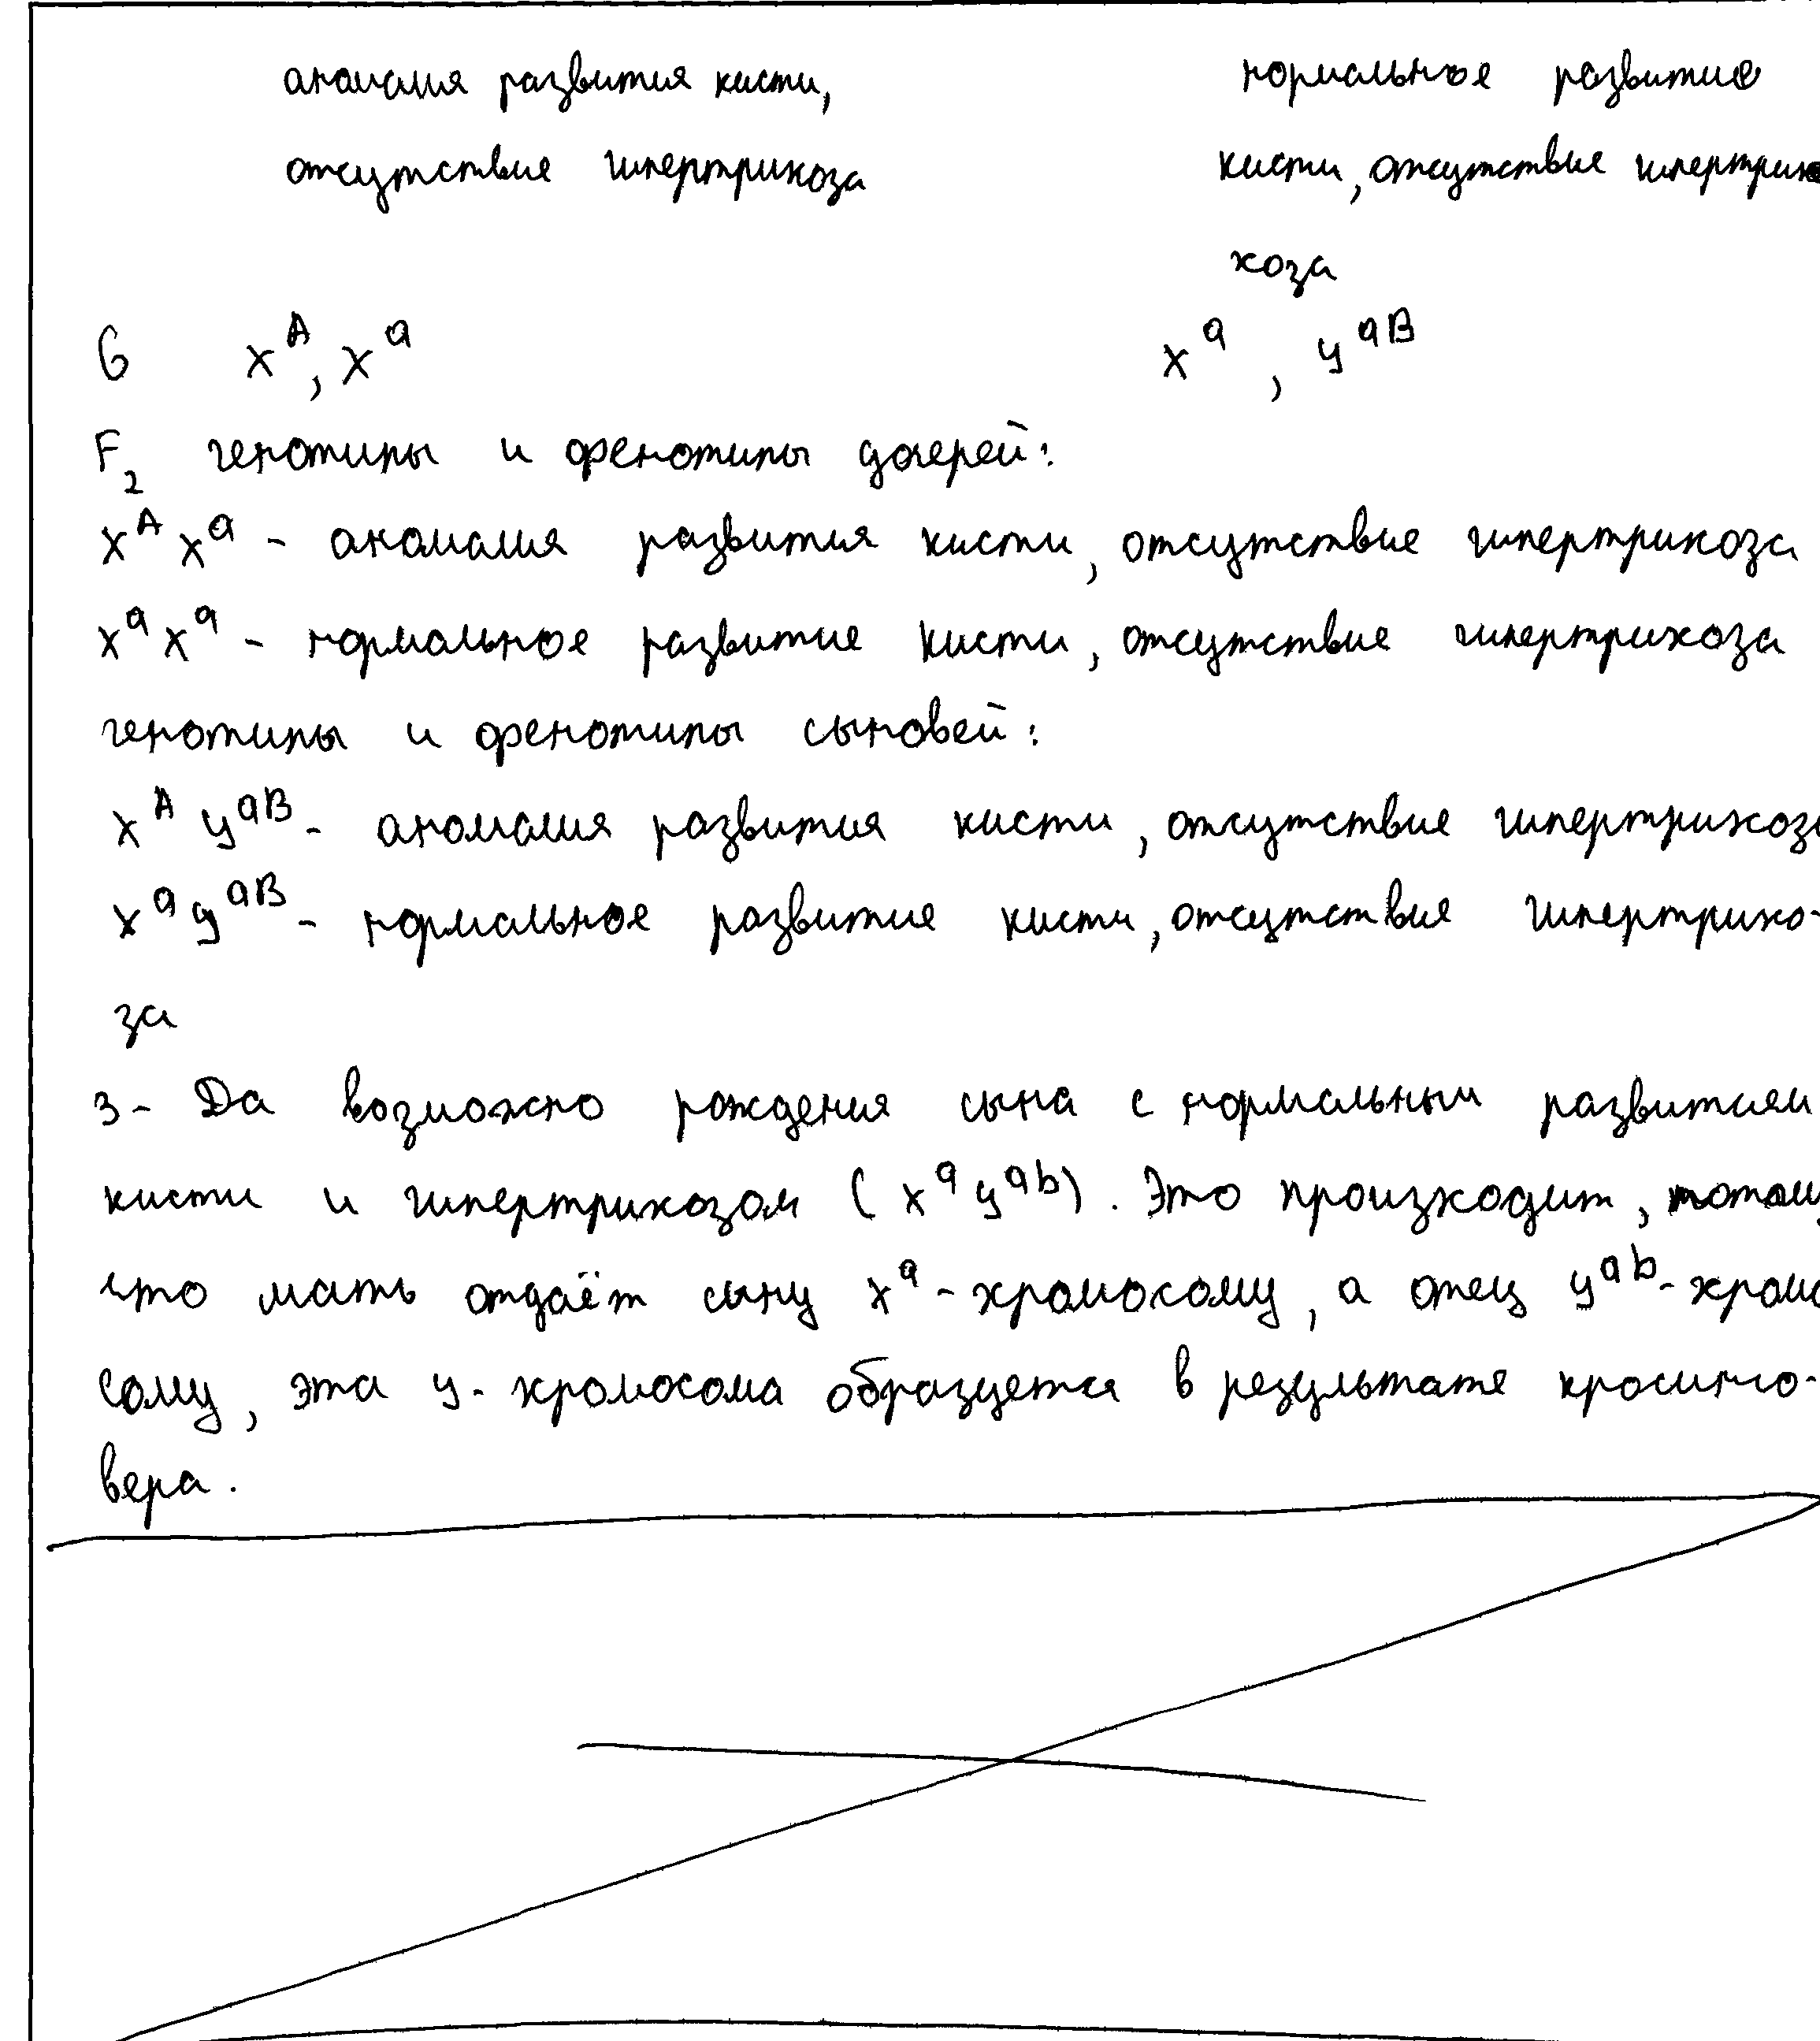 аномалия развития кисти, нормальное развитие
отсутствие гипертрихоза кисти, отсутствие гипертрих
хоза
G X^A, X^a X^a, У^aB
F2 генотипы и фенотипы дочерей:
X^A X^a - аномалия развития кисти, отсутствие гипертрихоза
X^a X^a - нормальное развитие кисти, отсутствие гипертрихоза
генотипы и фенотипы сыновей:
X^A У^aB - аномалия развития кисти, отсутствие гипертрихоза
X^a У^aB - нормальное развитие кисти, отсутствие гипертрихо-
за
3- Да возможно рождения сына с нормальным развитием
кисти и гипертрихозом (X^a У^ab). Это произходит, потому
что мать отдаёт сыну X^a-хромосому, а отец У^ab-хромо
сому, эта У-хромосома образуется в результате кроссинго-
вера.